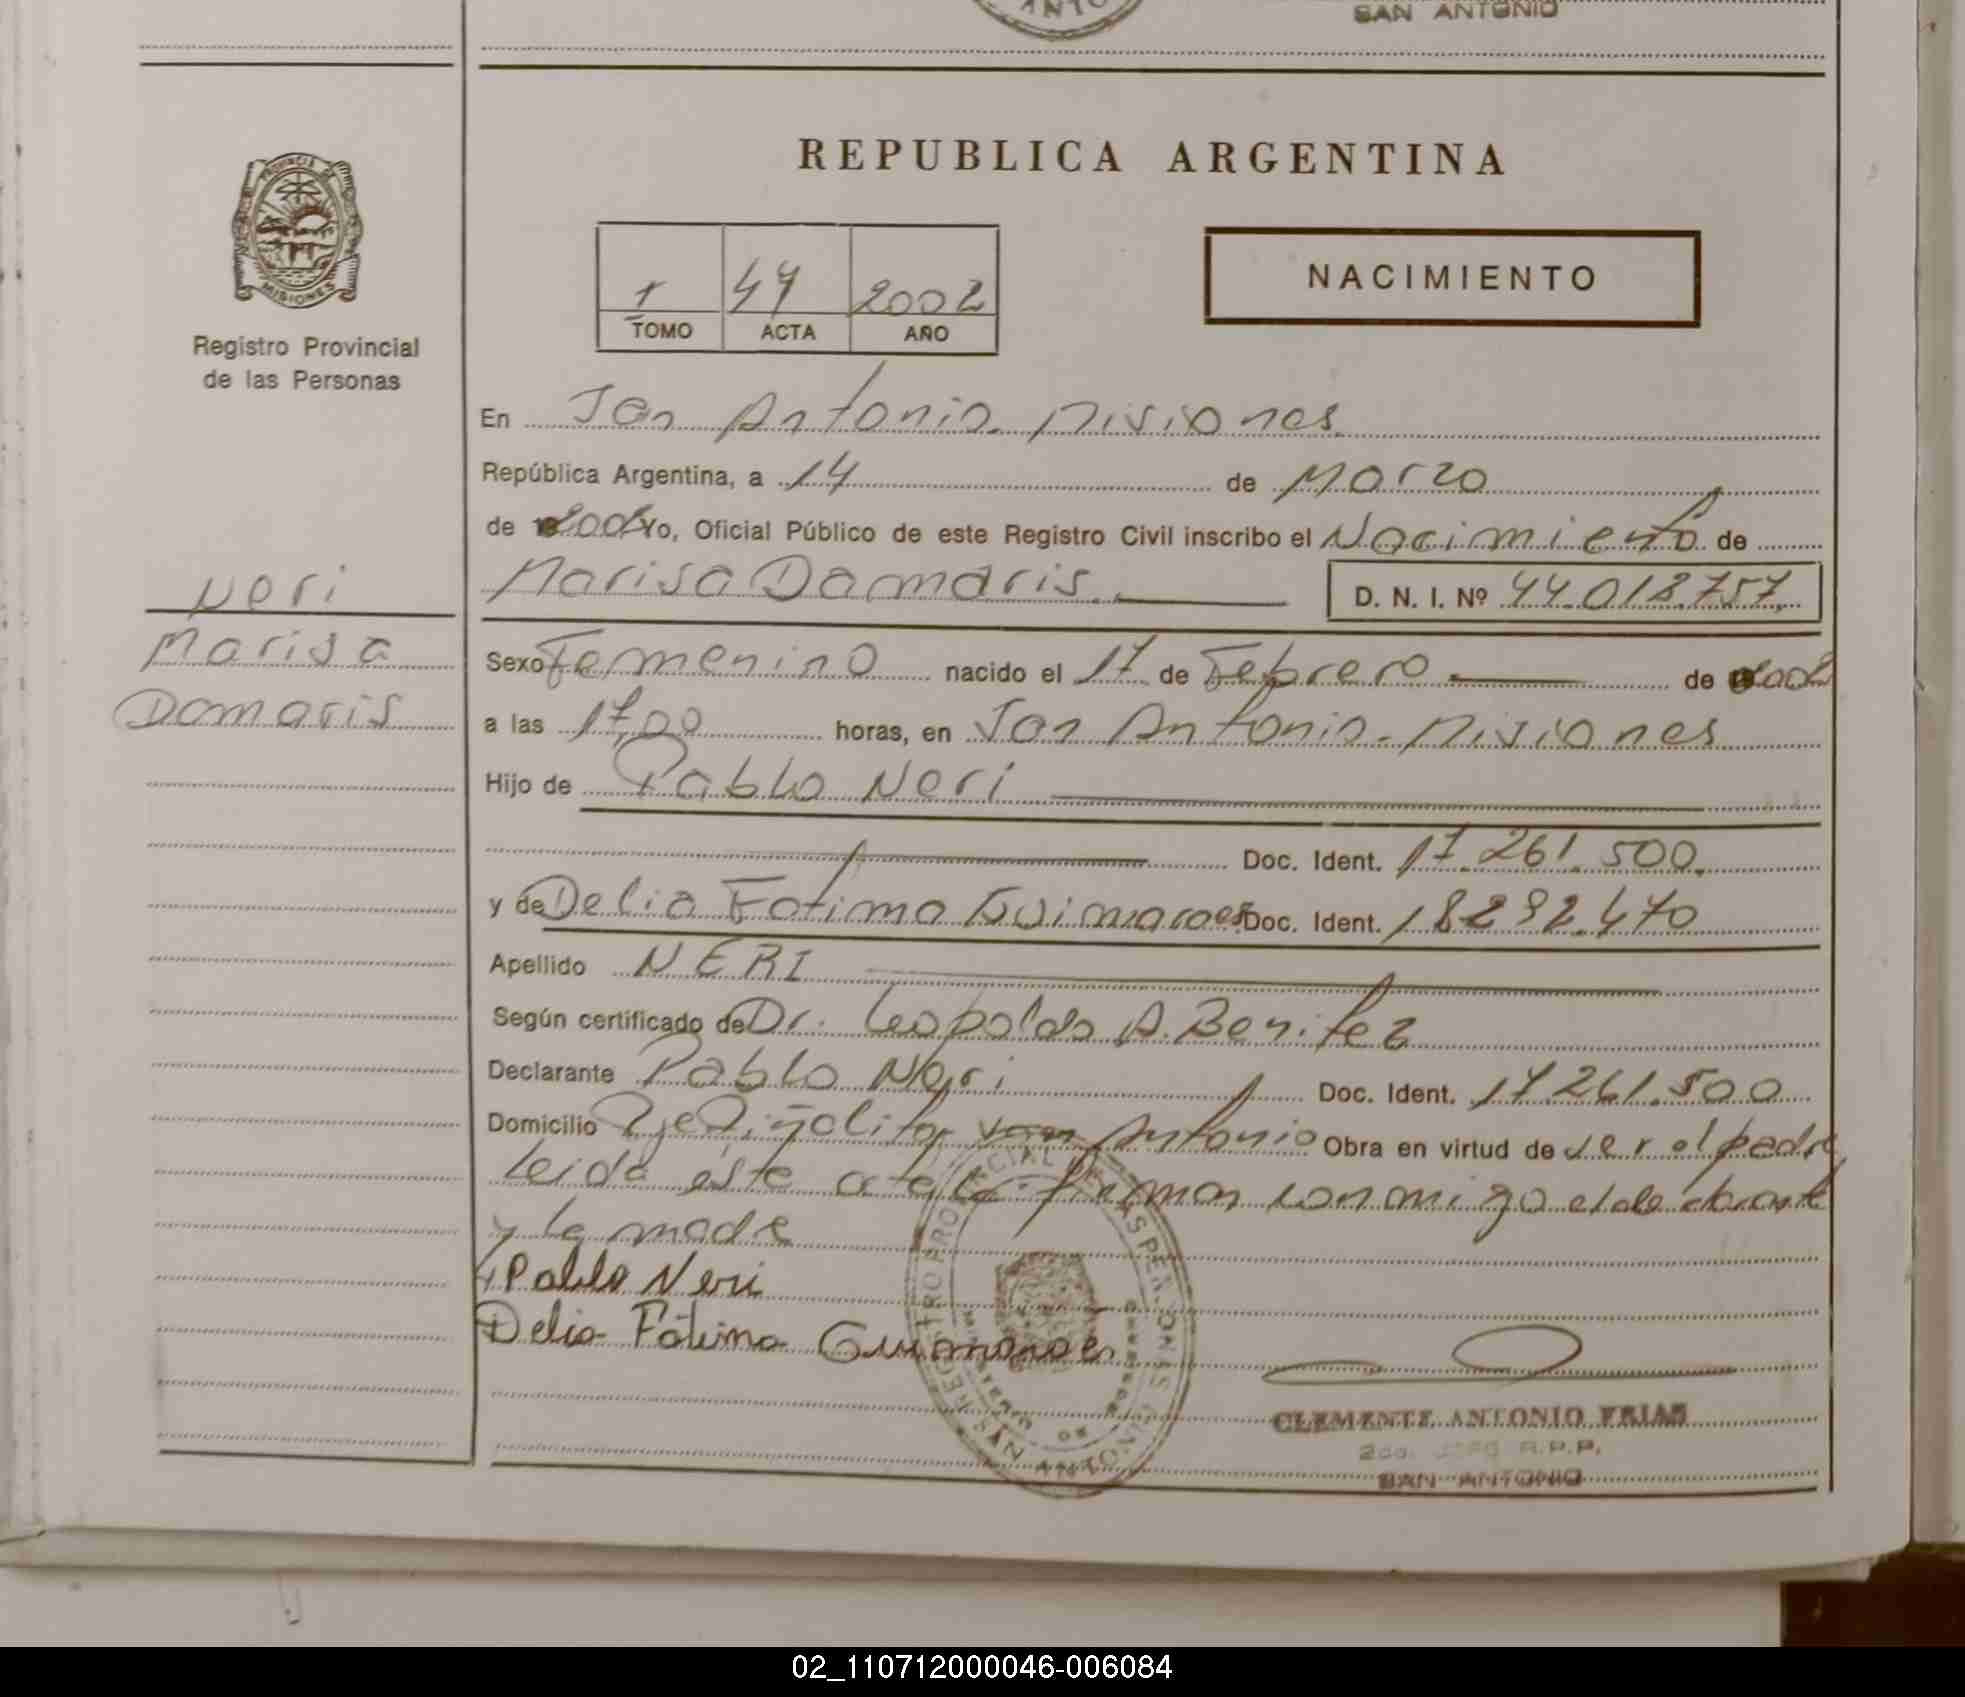 SAN ANTONIO
REPUBLICA ARGENTINA
PROVINCIA DE
MISIONES
Registro Provincial
de las Personas
NACIMIENTO
1 47 2002
TOMO ACTA AÑO
En San Antonio. Misiones
República Argentina, a 14 de Marzo
de 2002 Yo, Oficial Público de este Registro Civil inscribo el Nacimiento de
Marisa Damaris. D. N. I. Nº 44.018.757
Neri
Marisa
Damaris
Sexo Femenino nacido el 17 de Febrero de 2002
a las 17,00 horas, en San Antonio - Misiones
Hijo de Pablo Neri
Doc. Ident. 17.261.500.
y de Delia Fatima Guimaraes Doc. Ident. 18292.470
Apellido NERI
Según certificado de Dr. Leopoldo A. Benitez
Declarante Pablo Neri Doc. Ident. 17261.500
Domicilio Antonio Obra en virtud de ser el padre
leida este acta firman conmigo el declarante
y la madre
Pablo Neri
Delia Fátima Guimaraes
REGISTRO PROVINCIAL DE LAS PERSONAS
SAN ANTONIO
CLEMENTE ANTONIO FRIAS
2do. Jefe R.P.P.
SAN ANTONIO
02_110712000046-006084